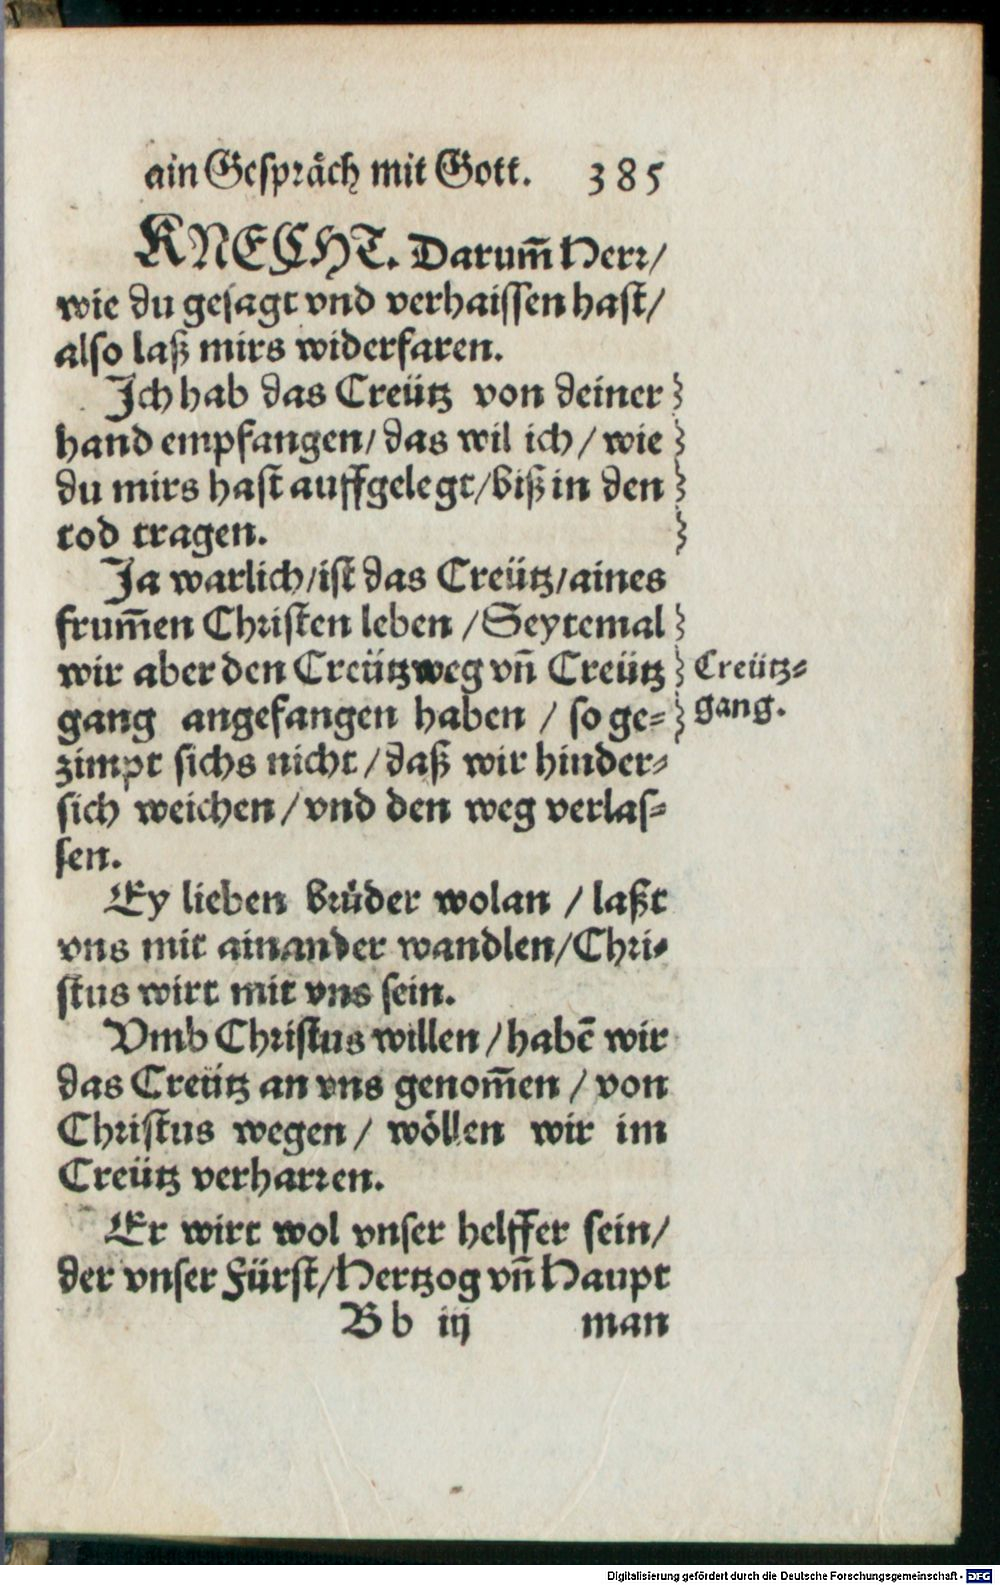 ain Gespräch mit Gott. 385
KNECHT. Darum̄ Herr/
wie du gesagt vnd verhaissen hast/
also laß mirs widerfaren.
Ich hab das Creütz von deiner
hand empfangen/ das wil ich / wie
du mirs hast auffgelegt/ biß in den
tod tragen.
Ja warlich/ ist das Creütz/ aines
frum̄en Christen leben / Seytemal
wir aber den Creützweg vn̄ Creütz
Creütz=
gang angefangen haben / so ge=
gang.
zimpt sichs nicht / daß wir hinder=
sich weichen / vnd den weg verlas=
sen.
Ey lieben brüder wolan / laßt
vns mit ainander wandlen/ Chri=
stus wirt mit vns sein.
Vmb Christus willen / habē wir
das Creütz an vns genom̄en / von
Christus wegen / wöllen wir im
Creütz verharren.
Er wirt wol vnser helffer sein/
der vnser Fürst/ Hertzog vn̄ Haupt
Bb iij man
Digitalisierung gefördert durch die Deutsche Forschungsgemeinschaft - DFG